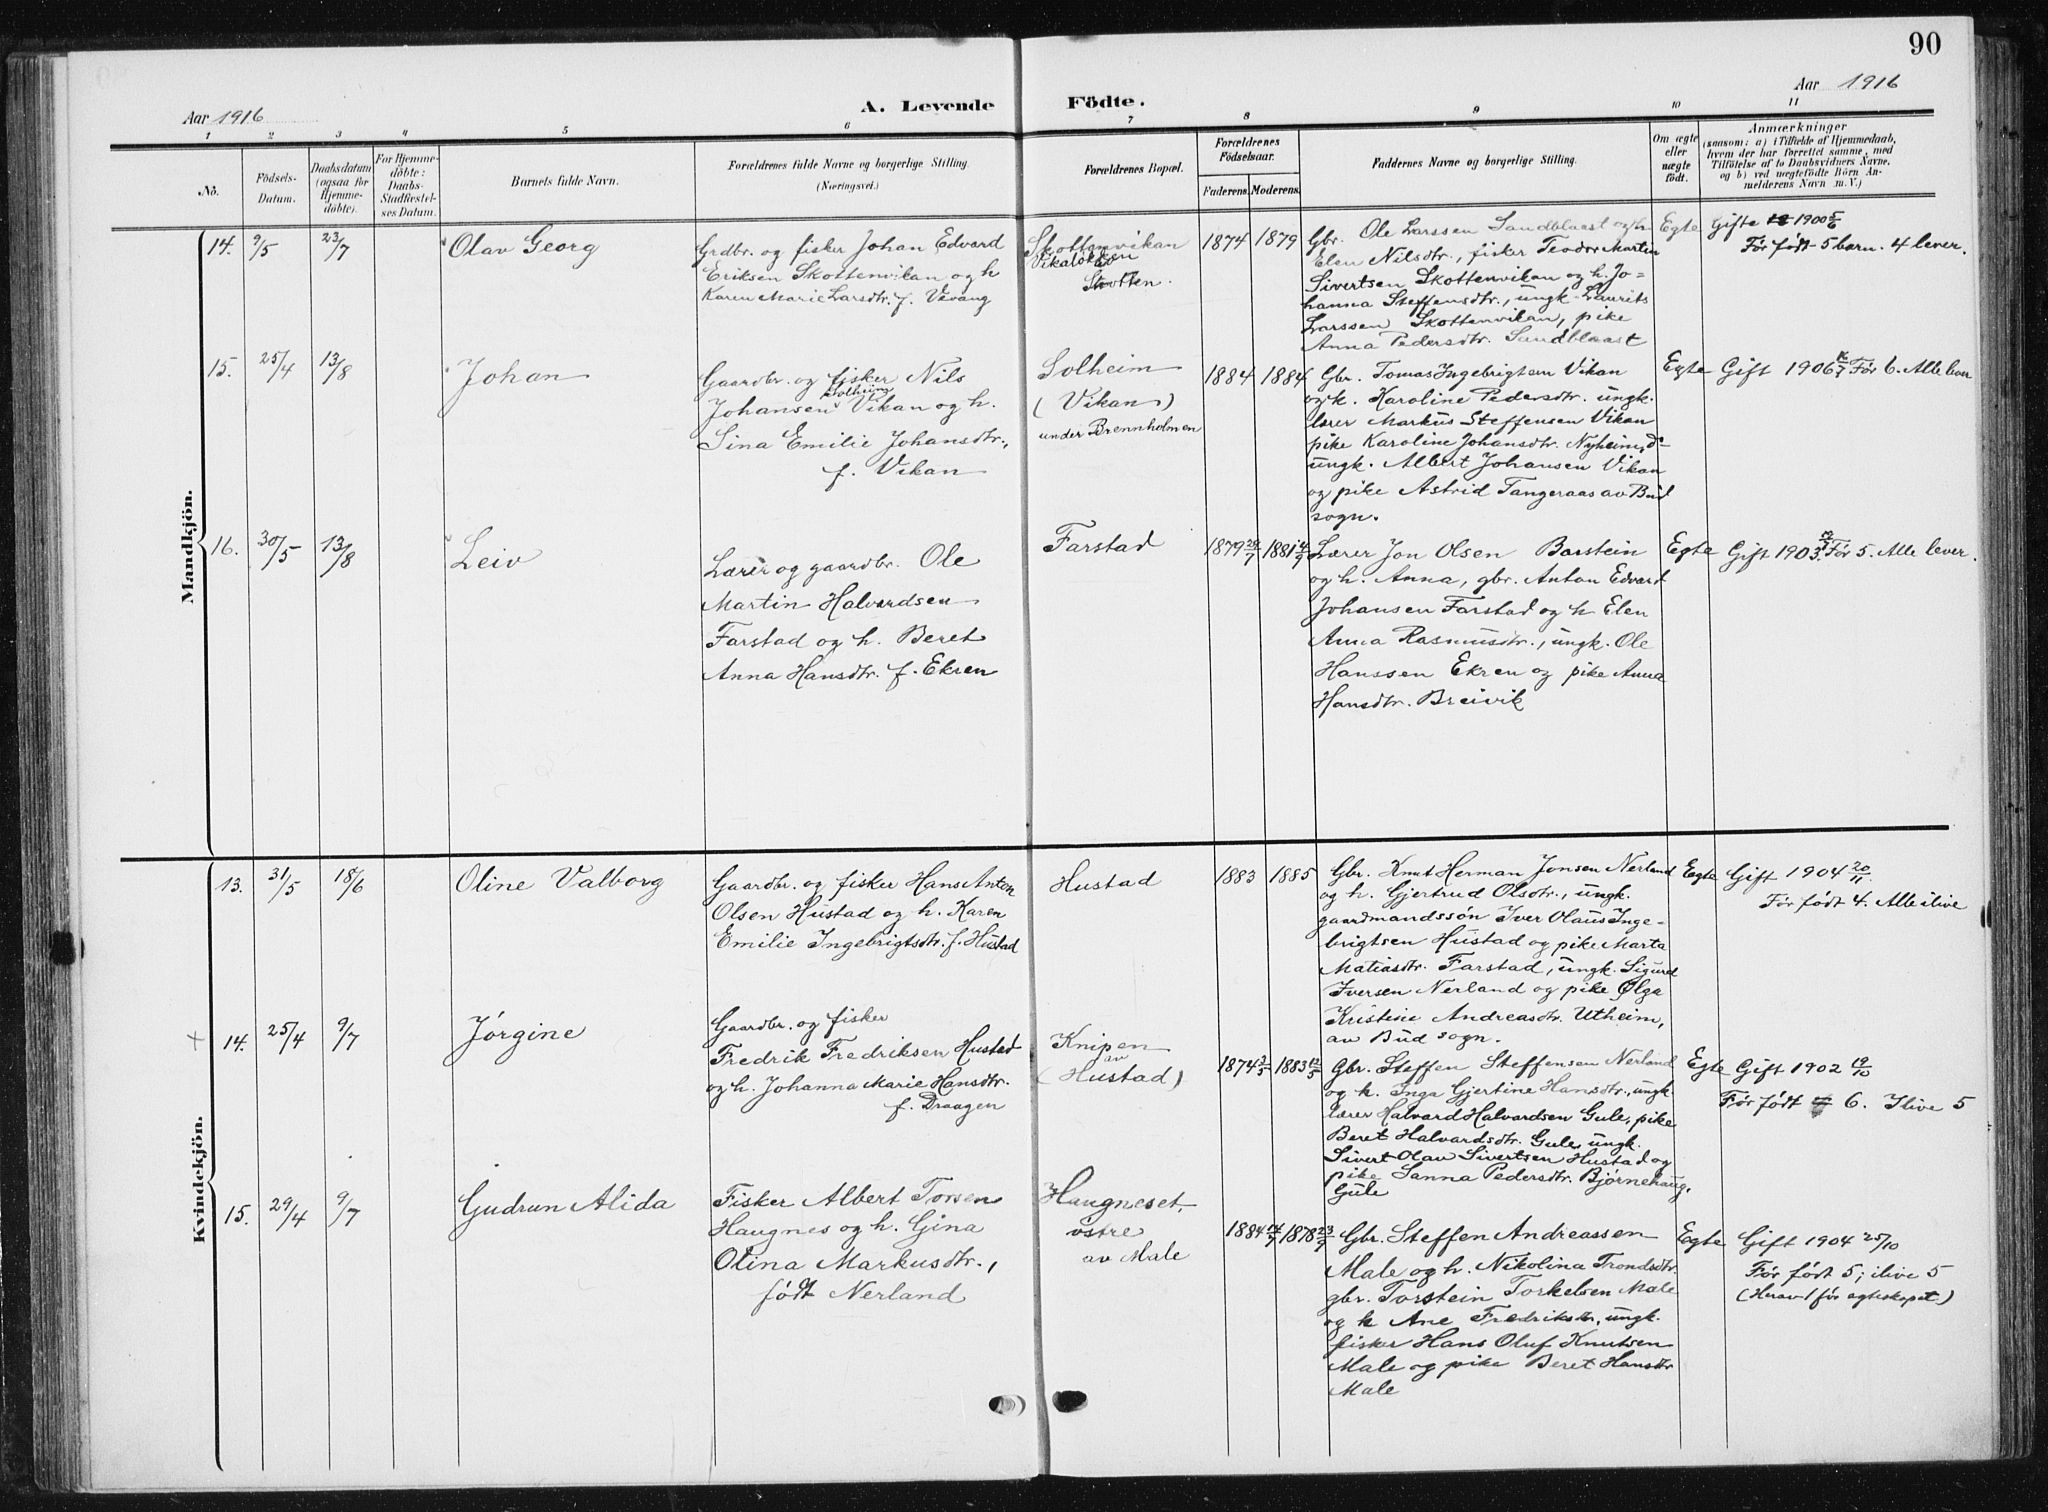 90
Aar 1916
A. Levende Födte.
Aar 1916
1 2 3 4 5 6 7 8 9 10 11
Nô.
Födsels-
Datum.
Daabsdatum
(ogsaa for
Hjemme-
döbte).
For Hjemme-
döbte:
Daabs-
Stadfæstel-
ses Datum.
Barnets fulde Navn.
Forældrenes fulde Navne og borgerlige Stilling.
(Næringsvei.)
Forældrenes Bopæl.
Forældrenes
Födselsaar.
Faderens. Moderens.
Faddernes Navne og borgerlige Stilling.
Om ægte
eller
uægte
født.
Anmærkninger
(saasom: a) i Tilfælde af Hjemmedaab,
hvem der har forrettet samme, med
Tilføielse af to Daabsvidners Navne,
og b) ved uægtefødte Börn An-
melderens Navn m. V.)
Mandkjön.
14. 9/5 23/7
Olav Georg
Grdbr. og fisker Johan Edvard
Eriksen Skottenvikan og h
Karen Marie Larsdtr. f. Vevang
Skottenvikan
Vikaløkken
Skotten.
1874 1879
Gbr. Ole Larssen Sandblaast og h
Elen Nilsdtr., fisker Teodor Martin
Sivertsen Skottenvikan og h. Jo-
hanna Steffensdtr., ungk. Laurits
Larssen Skottenvikan, pike
Anna Pedersdtr. Sandblaast
Egte
Gifte 1900 5/6
Før født 5 barn. 4 lever.
15. 25/4 13/8
Johan
Gaardbr. og fisker Nils
Solheim
Johansen Vikan og h.
Sina Emilie Johansdtr.,
f. Vikan
Solheim
(Vikan)
under Brennholmen
1884 1884
Gbr. Tomas Ingebrigtsen Vikan
og h. Karoline Pedersdtr. ungk.
lærer Markus Steffensen Vikan
pike Karoline Johansdtr. Nyheim,
ungk. Albert Johansen Vikan
og pike Astrid Tangeraas av Bud
sogn.
Egte
Gift 1906 Før 6. Alle leve
16. 30/5 13/8
Leiv
Lærer og gaardbr. Ole
Martin Halvardsen
Farstad og h. Beret
Anna Hansdtr. f. Ekren
Farstad
1879 29/7 1881 4/9
Lærer Jon Olsen Barstein
og h. Anna, gbr. Anton Edvard
Johansen Farstad og h Elen
Anna Rasmusdtr., ungk. Ole
Hanssen Ekren og pike Anna
Hansdtr. Breivik
Egte
Gift 1903 Før 5. Alle lever.
Kvindekjön.
13. 31/5 18/6
Oline Valborg
Gaardbr. og fisker Hans Anton
Olsen Hustad og h. Karen
Emilie Ingebrigtsdtr. f. Hustad
Hustad
1883 1885
Gbr. Knut Herman Jonsen Nerland
og h. Gjertrud Olsdtr., ungk.
gaardmandssøn Iver Olaus Inge-
brigtsen Hustad og pike Marta
Matiasdtr. Farstad, ungk. Sigurd
Iversen Nerland og pike Olga
Kristine Andreasdtr. Utheim,
av Bud sogn.
Egte
Gift 1904 20/11
Før født 4. Alle ilive
+ 14. 25/4 9/7
Jørgine
Gaardbr. og fisker
Fredrik Fredriksen Hustad
og h. Johanna Marie Hansdtr.
f. Draagen
Knipen
av
(Hustad)
1874 3/5 1883 12/5
Gbr. Steffen Steffensen Nerland
og h. Inga Gjertine Hansdtr., ungk.
lærer Halvard Halvardsen Gule, pike
Beret Halvardsdtr. Gule, ungk.
Sivert Olau Sivertsen Hustad og
pike Sanna Pedersdtr. Bjørnehaug,
Gule
Egte
Gift 1902 19/10
Før født 6. Ilive 5
15. 29/4 9/7
Gudrun Alida
Fisker Albert Torsen
Haugnes og h. Gina
Olina Markusdtr.,
født Nerland
Haugneset,
østre
av Male
1884 14/7 1878 23/9
Gbr. Steffen Andreassen
Male og h. Nikolina Trondsdtr
gbr. Torstein Torkelsen Male
og h Ane Fredriksdtr, ungk.
fisker Hans Oluf Knutsen
Male og pike Beret Hansdtr
Male
Egte
Gift 1904 25/10
Før født 5; ilive 5
(Herav 1 før egteskapet)